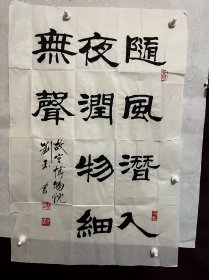 隨風潛入
夜潤物細
無聲
故宮博物院
劉玉